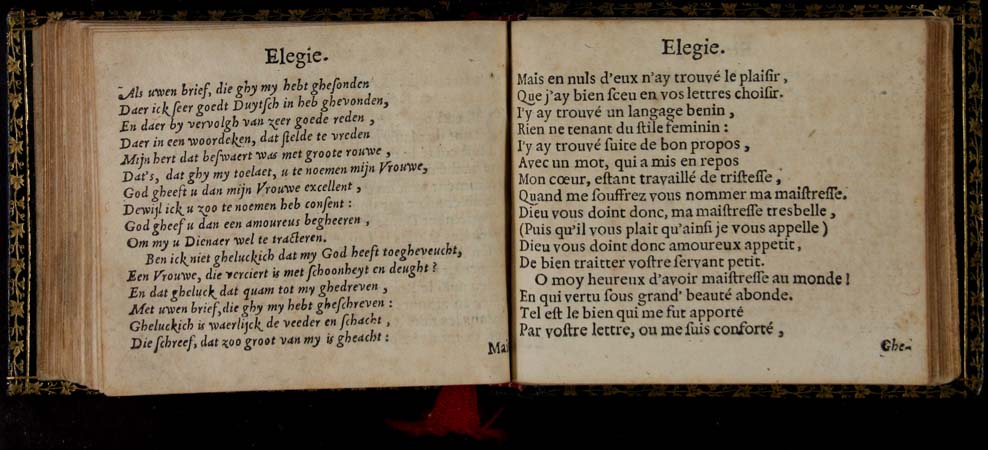 Elegie.
Als uwen brief, die ghy my hebt ghesonden
Daer ick seer goedt Duytsch in heb ghevonden,
En daer by vervolgh van zeer goede reden ,
Daer in een woordeken, dat stelde te vreden
Mijn hert dat beswaert was met groote rouwe ,
Dat's, dat ghy my toelaet, u te noemen mijn Vrouwe,
God gheeft u dan mijn Vrouwe excellent ,
Dewijl ick u zoo te noemen heb consent :
God gheef u dan een amoureus begheeren ,
Om my u Dienaer wel te tracteren.
Ben ick niet gheluckich dat my God heeft toegheveucht,
Een Vrouwe, die verciert is met schoonheyt en deught ?
En dat gheluck dat quam tot my ghedreven ,
Met uwen brief, die ghy my hebt gheschreven :
Gheluckich is waerlijck de veeder en schacht ,
Die schreef, dat zoo groot van my is gheacht :
Mai
Elegie.
Mais en nuls d'eux n'ay trouvé le plaisir ,
Que j'ay bien sceu en vos lettres choisir.
I'y ay trouvé un langage benin ,
Rien ne tenant du stile feminin :
I'y ay trouvé suite de bon propos ,
Avec un mot, qui a mis en repos
Mon cœur, estant travaillé de tristesse ,
Quand me souffrez vous nommer ma maistresse.
Dieu vous doint donc, ma maistresse tresbelle ,
(Puis qu'il vous plait qu'ainsi je vous appelle )
Dieu vous doint donc amoureux appetit ,
De bien traitter vostre servant petit.
O moy heureux d'avoir maistresse au monde !
En qui vertu sous grand' beauté abonde.
Tel est le bien qui me fut apporté
Par vostre lettre, ou me suis conforté ,
Ghe-